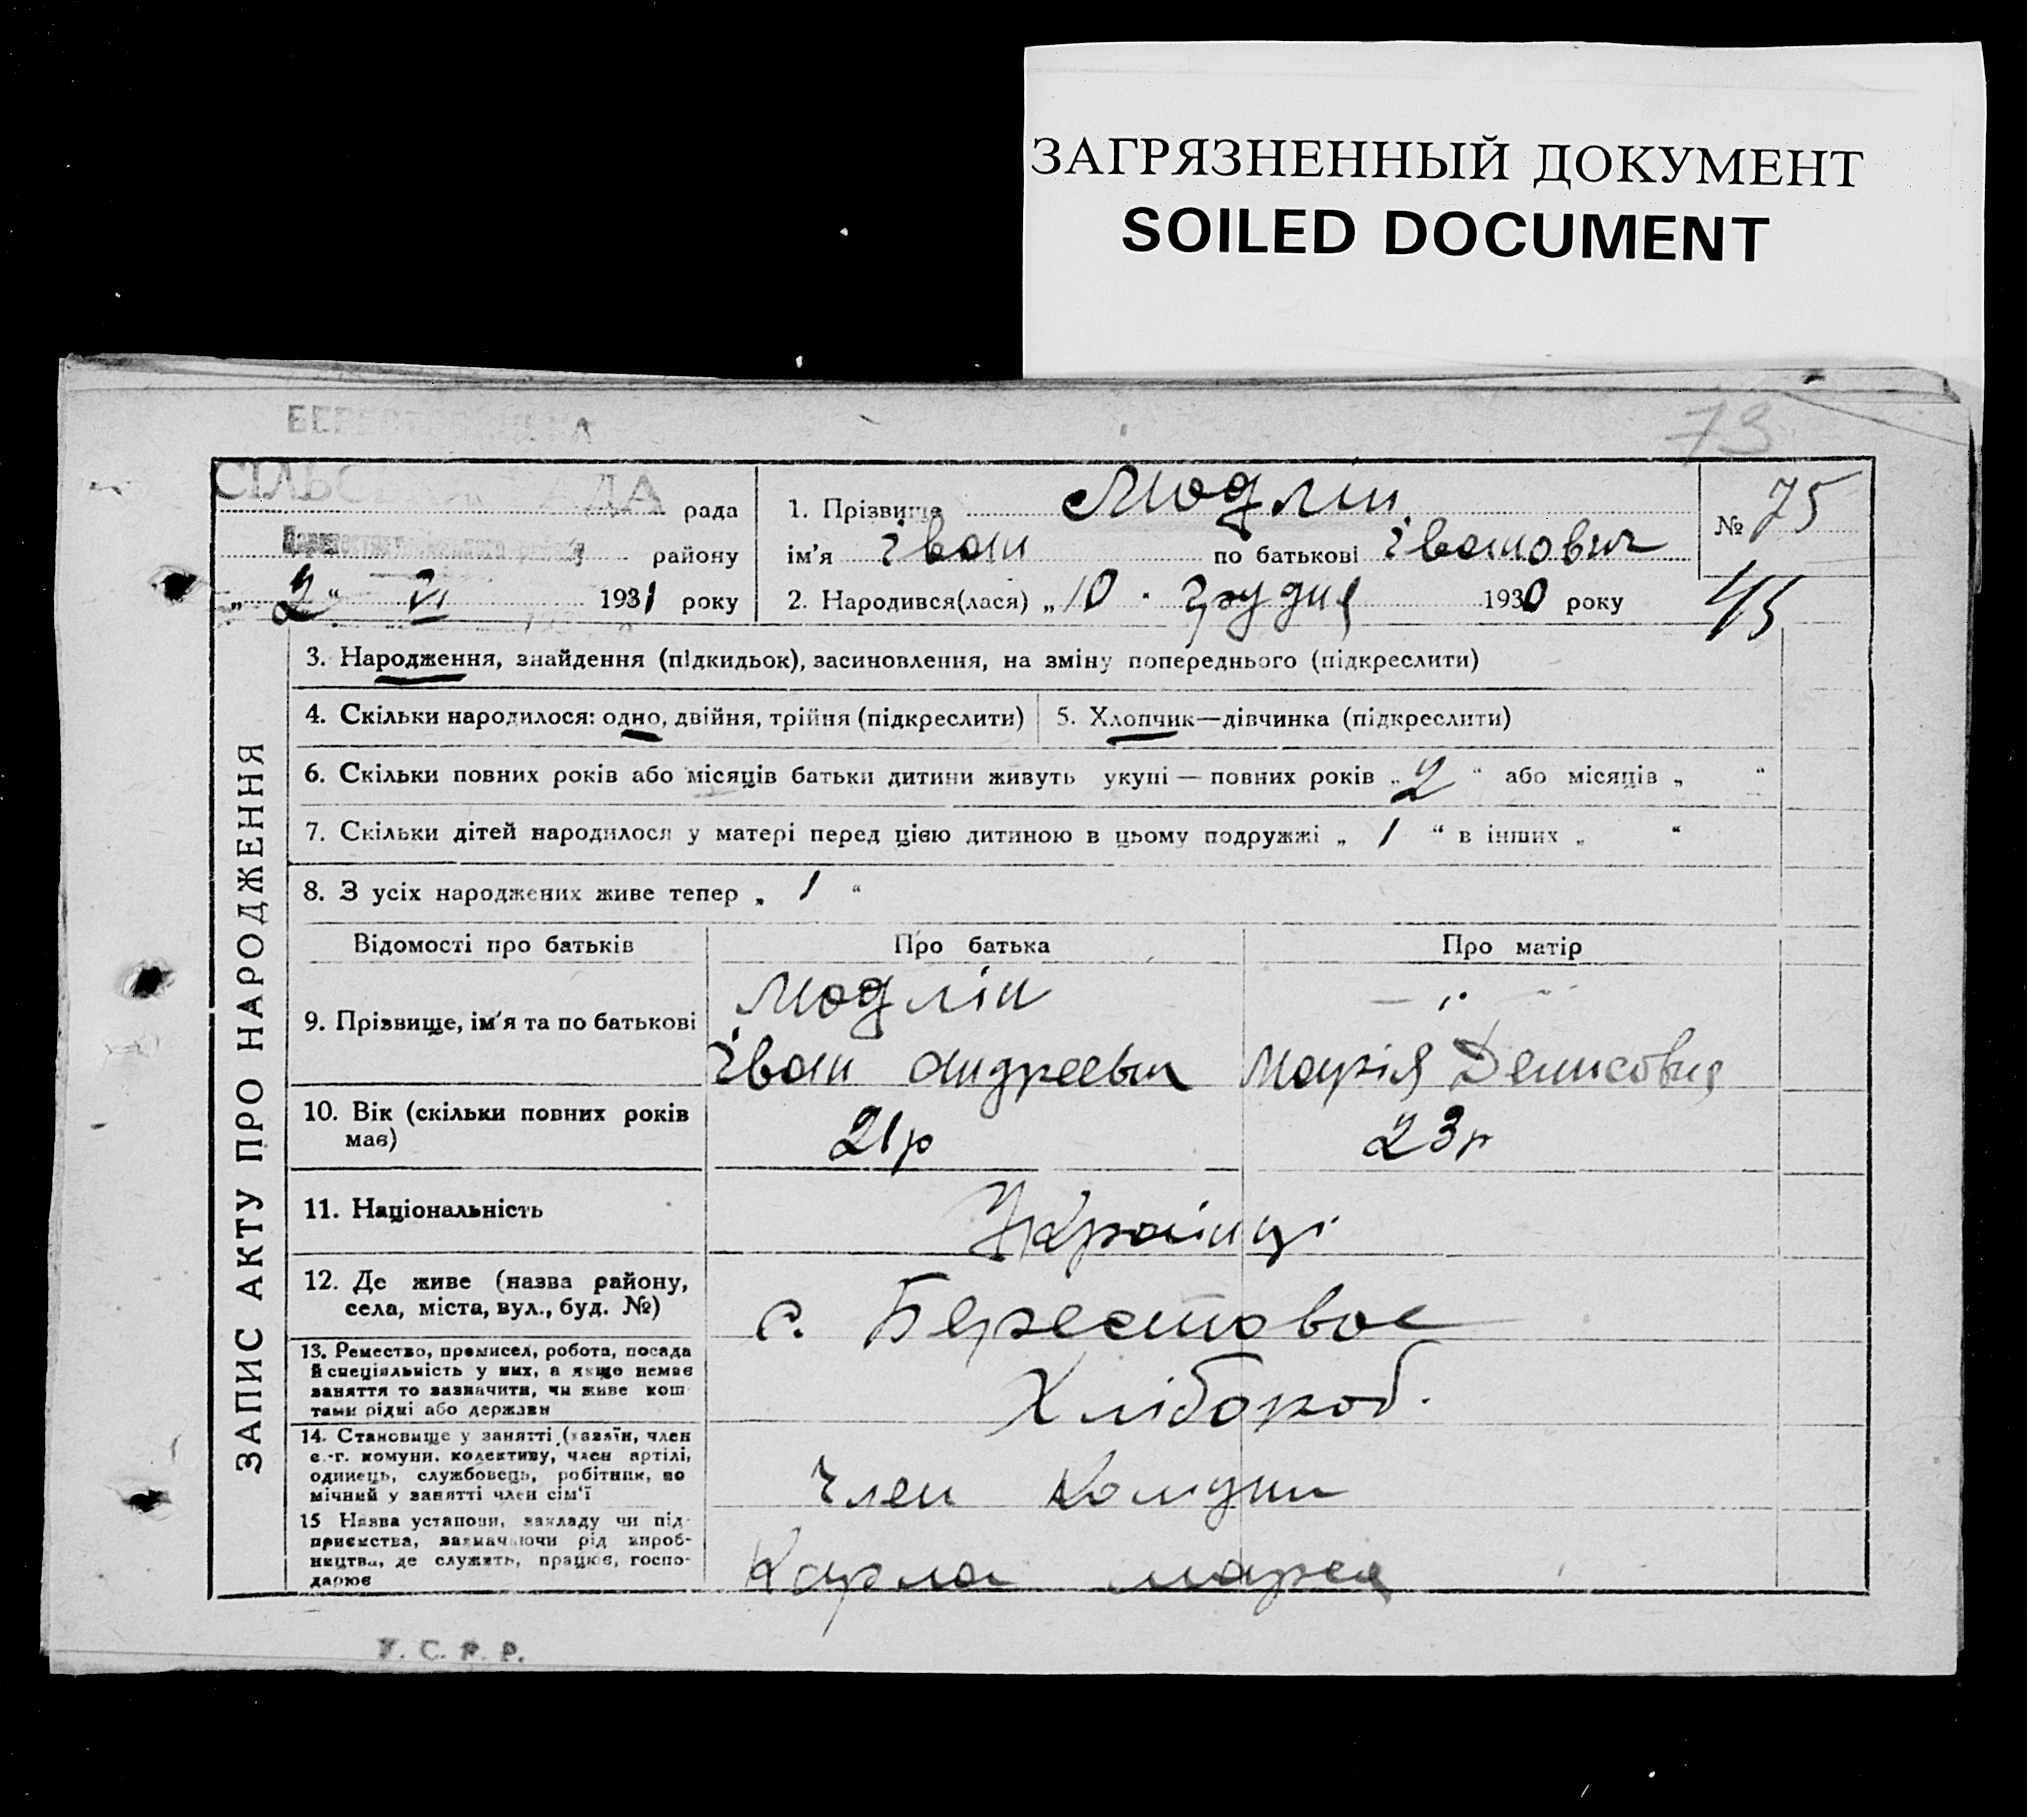 ЗАГРЯЗНЕННЫЙ ДОКУМЕНТ
SOILED DOCUMENT
73
СІЛЬС РАДА рада
району
„ 2 “ VI 1931 року
1. Прізвище Модлін
ім'я Іван по батькові Іванович
2. Народився(лася) „ 10 . грудня 1930 року
№ 75
45
ЗАПИС АКТУ ПРО НАРОДЖЕННЯ
3. Народження, знайдення (підкидьок), засиновлення, на зміну попереднього (підкреслити)
4. Скільки народилося: одно, двійня, трійня (підкреслити) 5. Хлопчик—дівчинка (підкреслити)
6. Скільки повних років або місяців батьки дитини живуть укупі — повних років „ 2 “ або місяців „ “
7. Скільки дітей народилося у матері перед цією дитиною в цьому подружжі „ 1 “ в інших „ “
8. З усіх народжених живе тепер „ 1 “
Відомості про батьків Про батька Про матір
9. Прізвище, ім'я та по батькові
Модлін — „ —
Іван Андреевич Марія Денисовна
10. Вік (скільки повних років
має)
21р 23р
11. Національність
Українці
12. Де живе (назва району,
села, міста, вул., буд. №)
с. Берестовое
13. Ремество, промисел, робота, посада
й спеціяльність у них, а якщо немає
заняття то зазначити, чи живе кош
тами рідні або держави
Хлібороб.
14. Становище у занятті (хазяїн, член
с.-г. комуни, колективу, член артілі,
одинець, службовець, робітник, по
мічний у занятті член сім'ї
Член комуни
15 Назва установи, закладу чи під-
приємства, зазначаючи рід вироб-
ництва, де служить, працює, госпо-
дарює
Карла маркса
У. С. Р. Р.